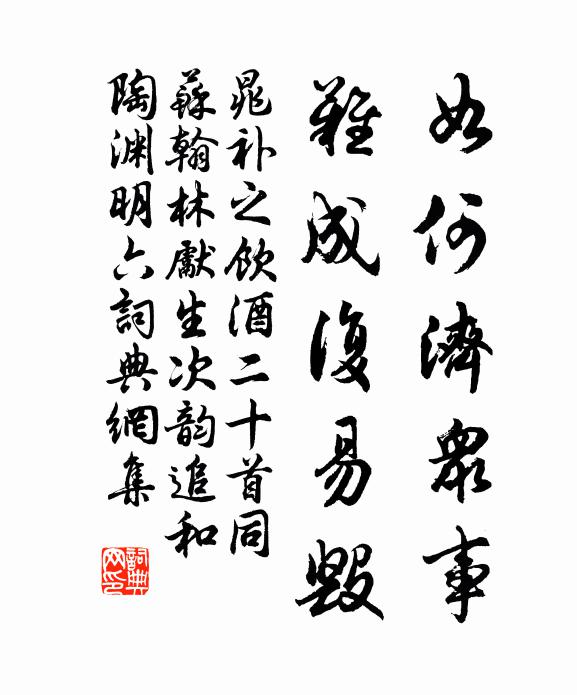 如何濟眾事
難成復易毀
晁补之飲酒二十首同
蘇翰林獻生次韵追和
陶渊明六詞典網集
詞典网印